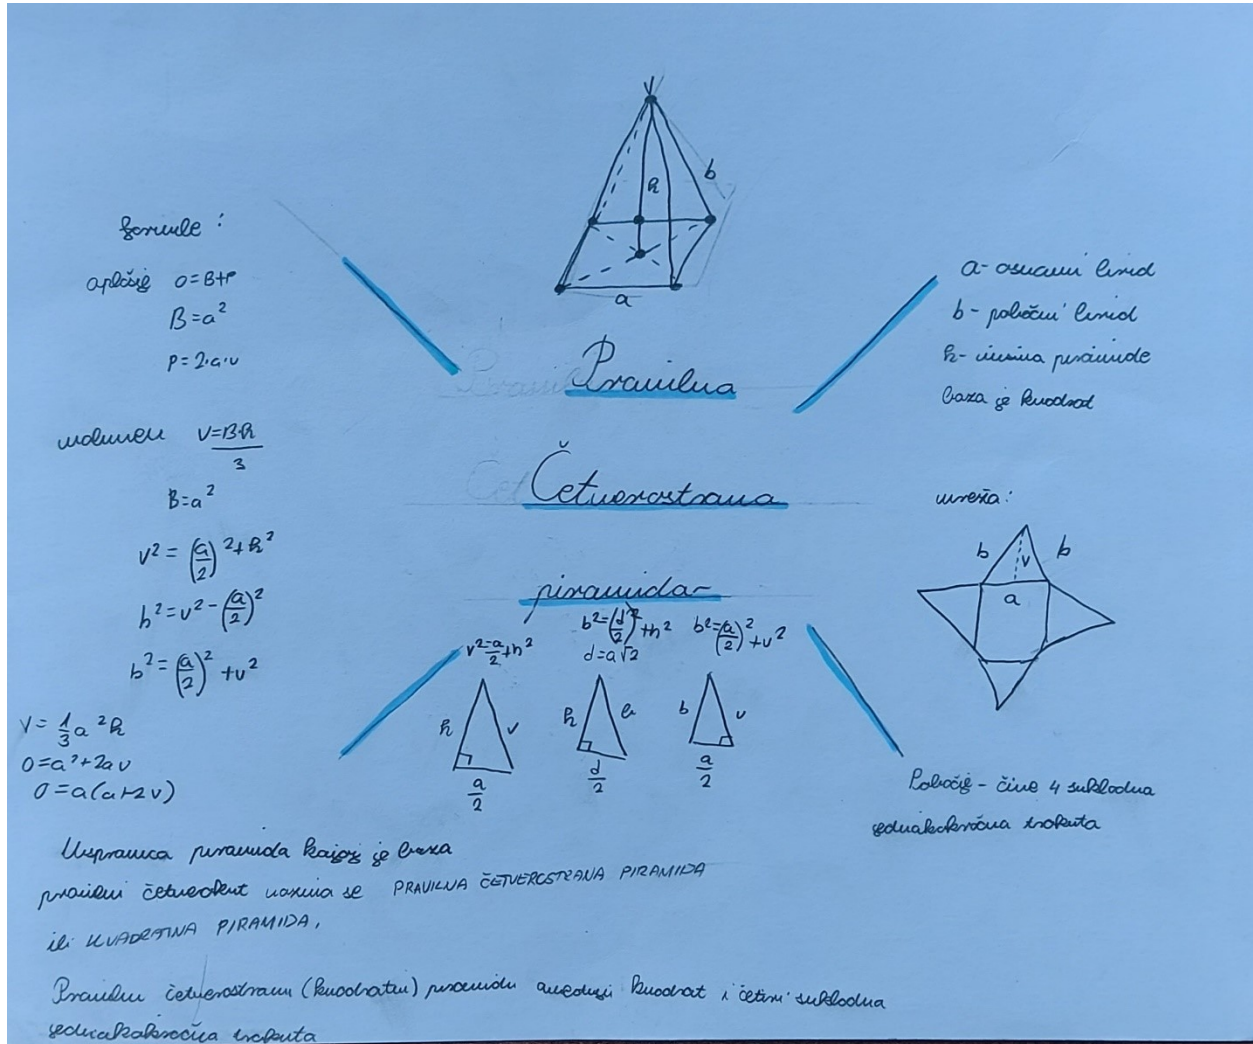 V
h
b
a
formule:
oplošje O=B+P
B=a²
P=2·a·v
volumen V=B·h/3
B=a²
v²=(a/2)²+h²
b²=v²-(a/2)²
b²=(a/2)²+v²
V=1/3 a²h
O=a²+2av
O=a(a+2v)
Pravilna
Četverostrana
piramida
a- osnovni brid
b- pobočni brid
h- visina piramide
baza je kvadrat
mreža:
b
v
b
a
v²=a/2+h²
b²=(d/2)²+h²
d=a√2
b²=(a/2)²+v²
h
v
a/2
h
b
d/2
b
v
a/2
Pobočje - čine 4 sukladna
jednakokračna trokuta
Uspravna piramida kojoj je baza
pravilni četverokut naziva se PRAVILNA ČETVEROSTRANA PIRAMIDA
ili KVADRATNA PIRAMIDA,
Pravilnu četverostranu (kvadratnu) piramidu omeđuju kvadrat i četiri sukladna
jednakokračna trokuta